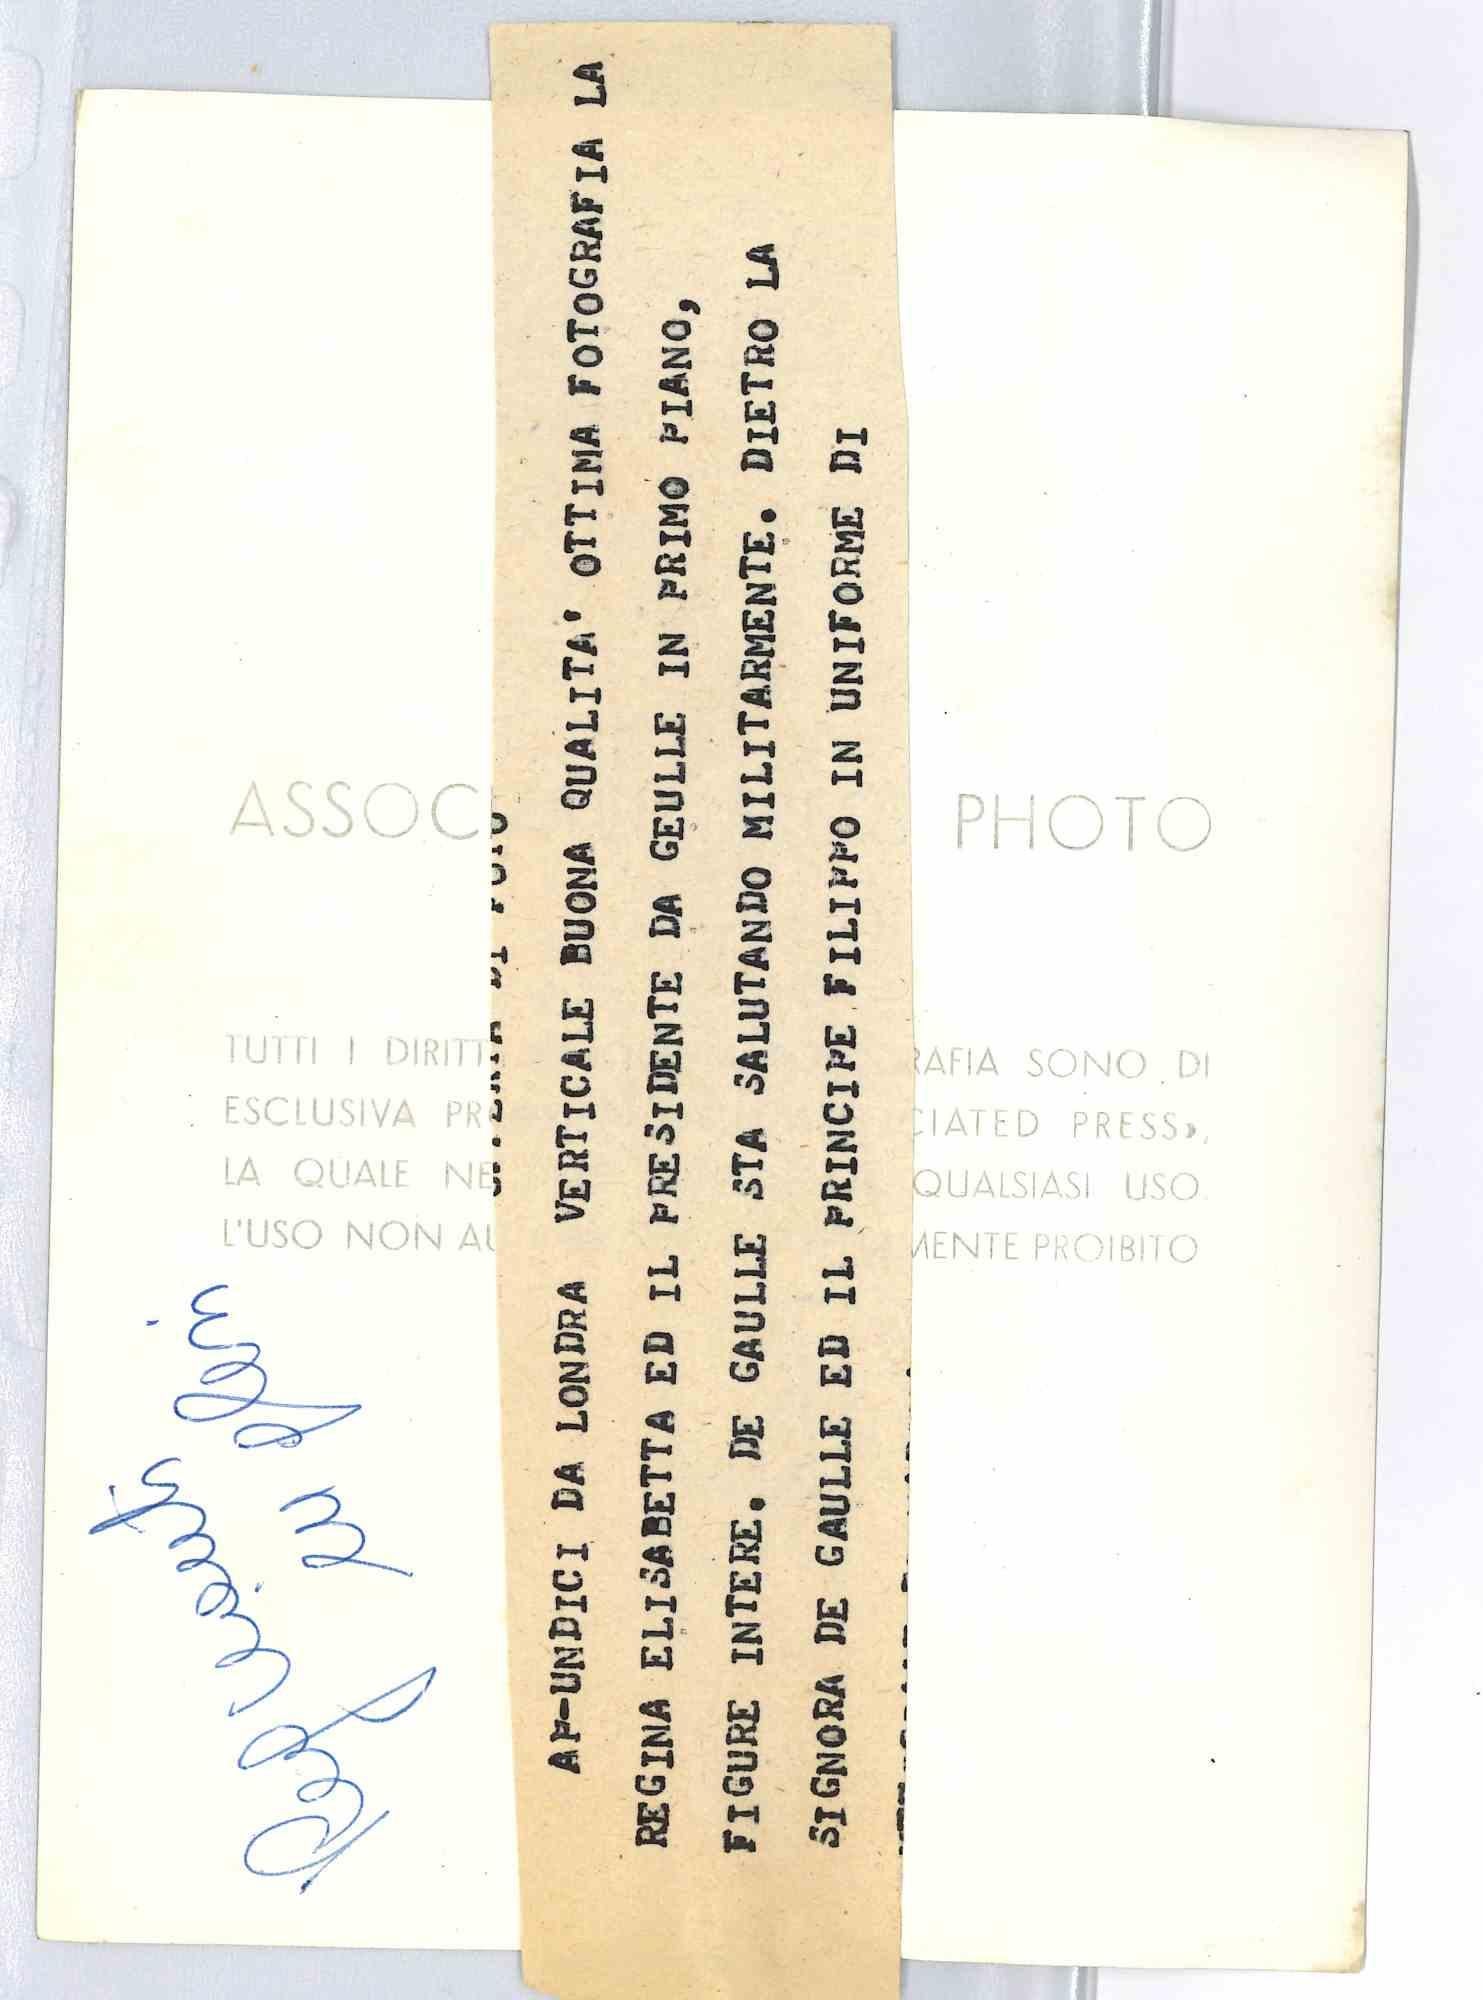 ASSOC PHOTO
TUTTI I DIRITT RAFIA SONO DI
ESCLUSIVA PR CIATED PRESS»,
LA QUALE NE QUALSIASI USO.
L'USO NON AU MENTE PROIBITO
AP-UNDICI DA LONDRA VERTICALE BUONA QUALITA' OTTIMA FOTOGRAFIA LA
REGINA ELISABETTA ED IL PRESIDENTE DA GEULLE IN PRIMO PIANO,
FIGURE INTERE. DE GAULLE STA SALUTANDO MILITARMENTE. DIETRO LA
SIGNORA DE GAULLE ED IL PRINCIPE FILIPPO IN UNIFORME DI